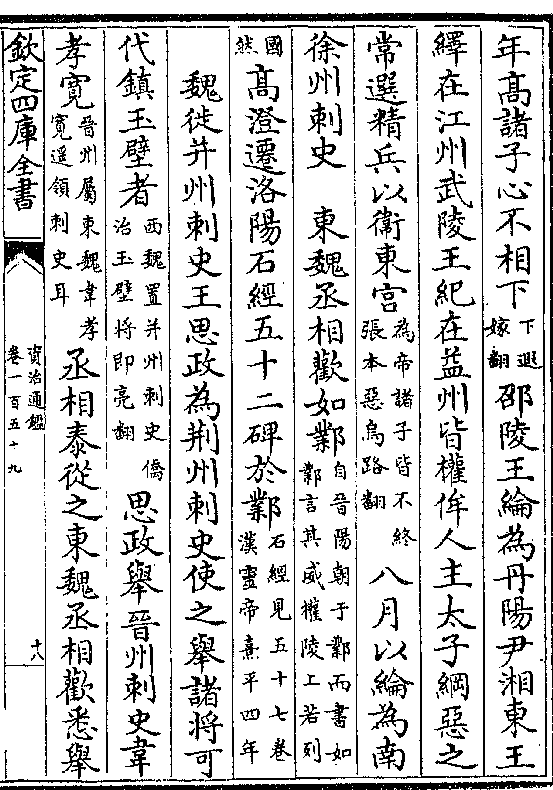 年髙諸子心不相下下遐嫁翻邵陵王綸為丹陽尹湘東王
繹在江州武陵王紀在益州皆權侔人主太子綱惡之
常選精兵以衛東宫為帝諸子皆不終張本惡烏路翻八月以綸為南
徐州刺史　東魏丞相歡如鄴自晉陽朝于鄴而書如鄴言其威權陵上若列
國然髙澄遷洛陽石經五十二碑於鄴石經見五十七卷漢靈帝熹平四年
魏徙并州刺史王思政為荆州刺史使之舉諸將可
代鎮玉壁者西魏置并州刺史僑治玉壁將即亮翻思政舉晉州刺史韋
孝寛晉州屬東魏韋孝寛遥領刺史耳丞相泰從之東魏丞相歡悉舉
欽定四庫全書
資治通鑑
卷一百五十九
十八